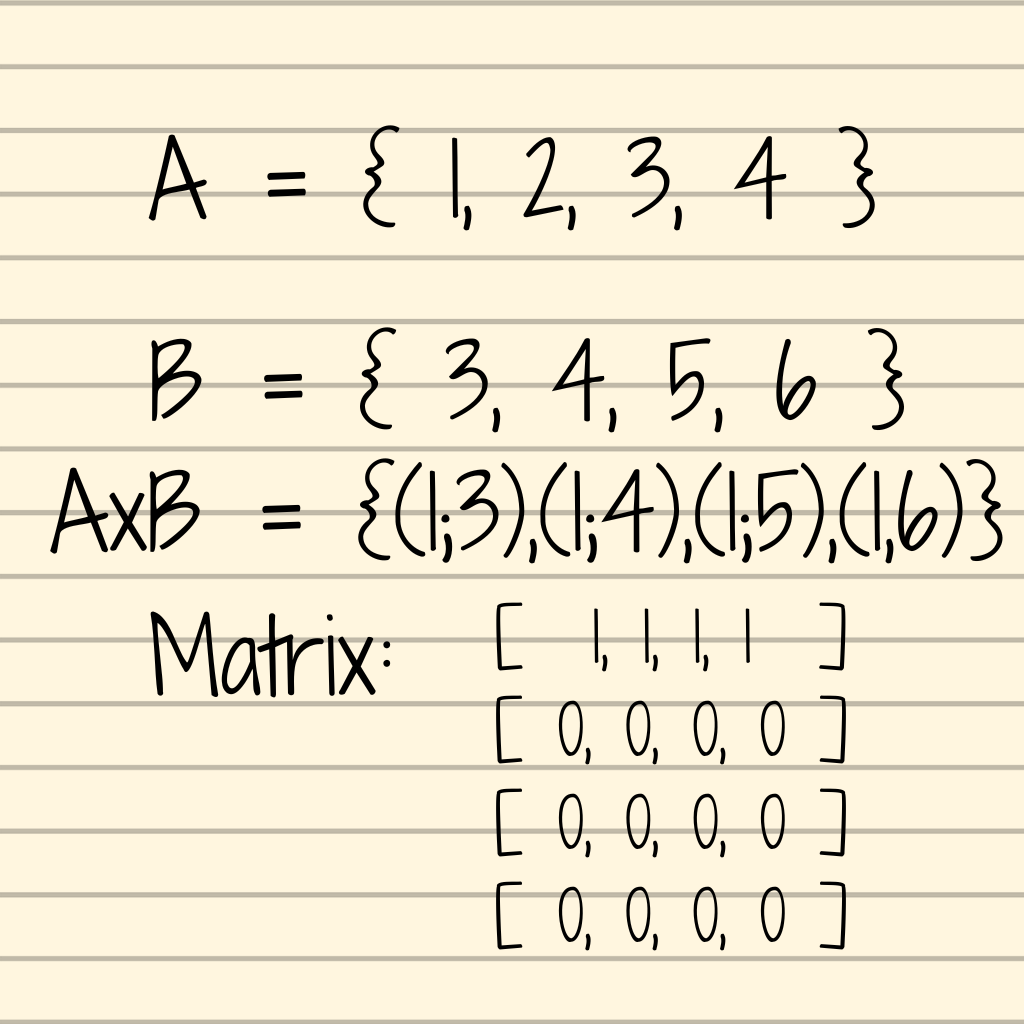 A = { 1, 2, 3, 4 }
B = { 3, 4, 5, 6 }
AxB = {(1;3),(1;4),(1;5),(1,6)}
Matrix: [ 1, 1, 1, 1 ]
[ 0, 0, 0, 0 ]
[ 0, 0, 0, 0 ]
[ 0, 0, 0, 0 ]